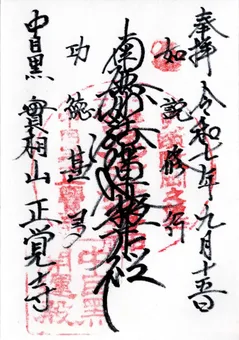 奉拝 令和七年九月十五日
如説修行
南無妙法蓮華経
功徳甚多
中目黒 實相山 正覚寺
中目黒
開運殿